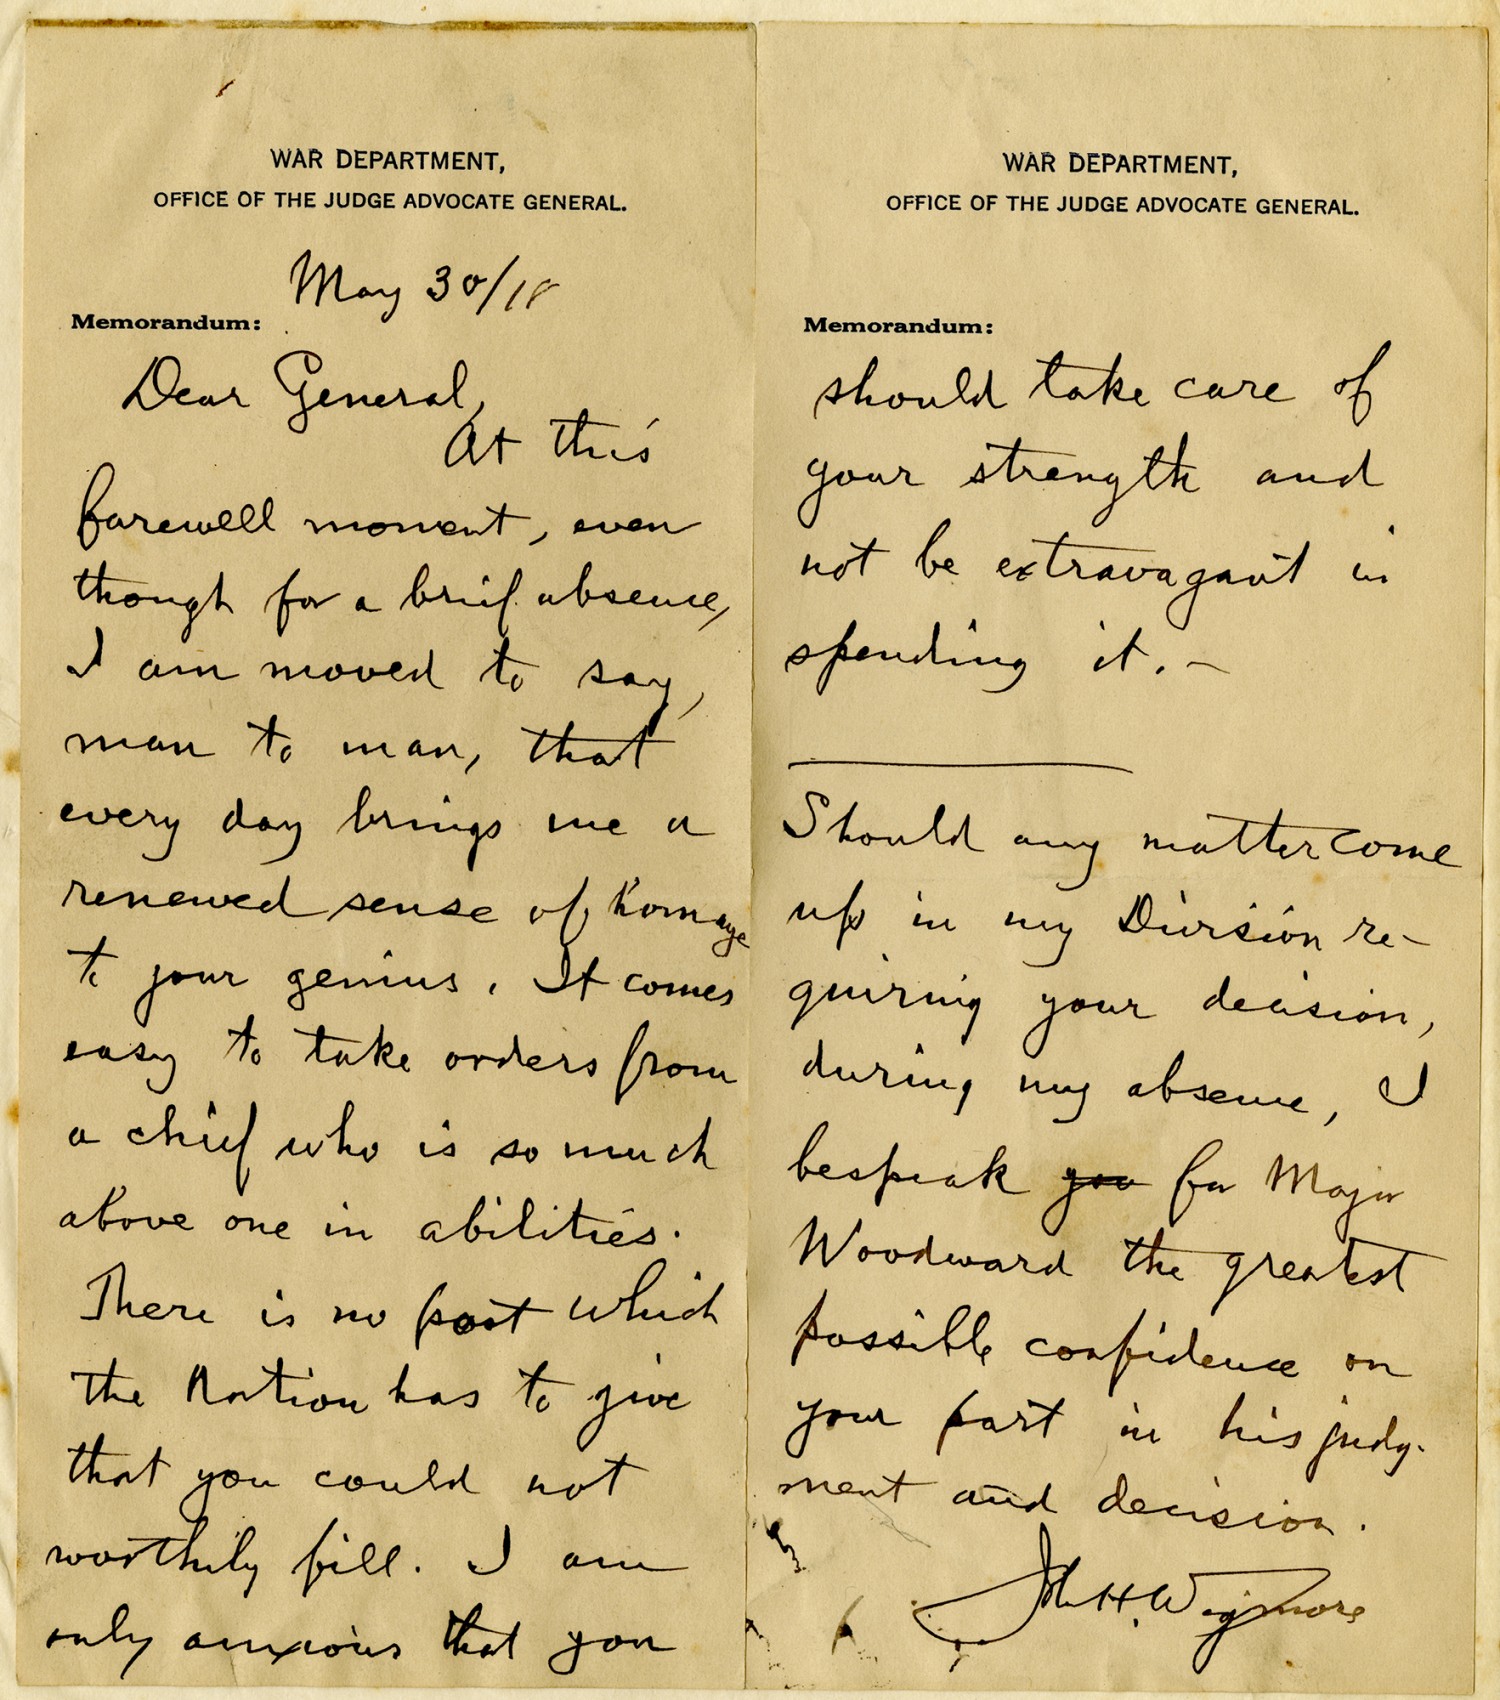 WAR DEPARTMENT,
OFFICE OF THE JUDGE ADVOCATE GENERAL.
May 30/18
Memorandum:
Dear General,
At this
farewell moment, even
though for a brief absence,
I am moved to say,
man to man, that
every day brings me a
renewed sense of homage
to your genius. It comes
easy to take orders from
a chief who is so much
above one in abilities.
There is no post which
the Nation has to give
that you could not
worthily fill. I am
only anxious that you
WAR DEPARTMENT,
OFFICE OF THE JUDGE ADVOCATE GENERAL.
Memorandum:
should take care of
your strength and
not be extravagant in
spending it. –
Should any matter come
up in my Division re-
quiring your decision,
during my absence, I
bespeak you for Major
Woodward the greatest
possible confidence on
your part in his judg-
ment and decision.
John H. Wigmore